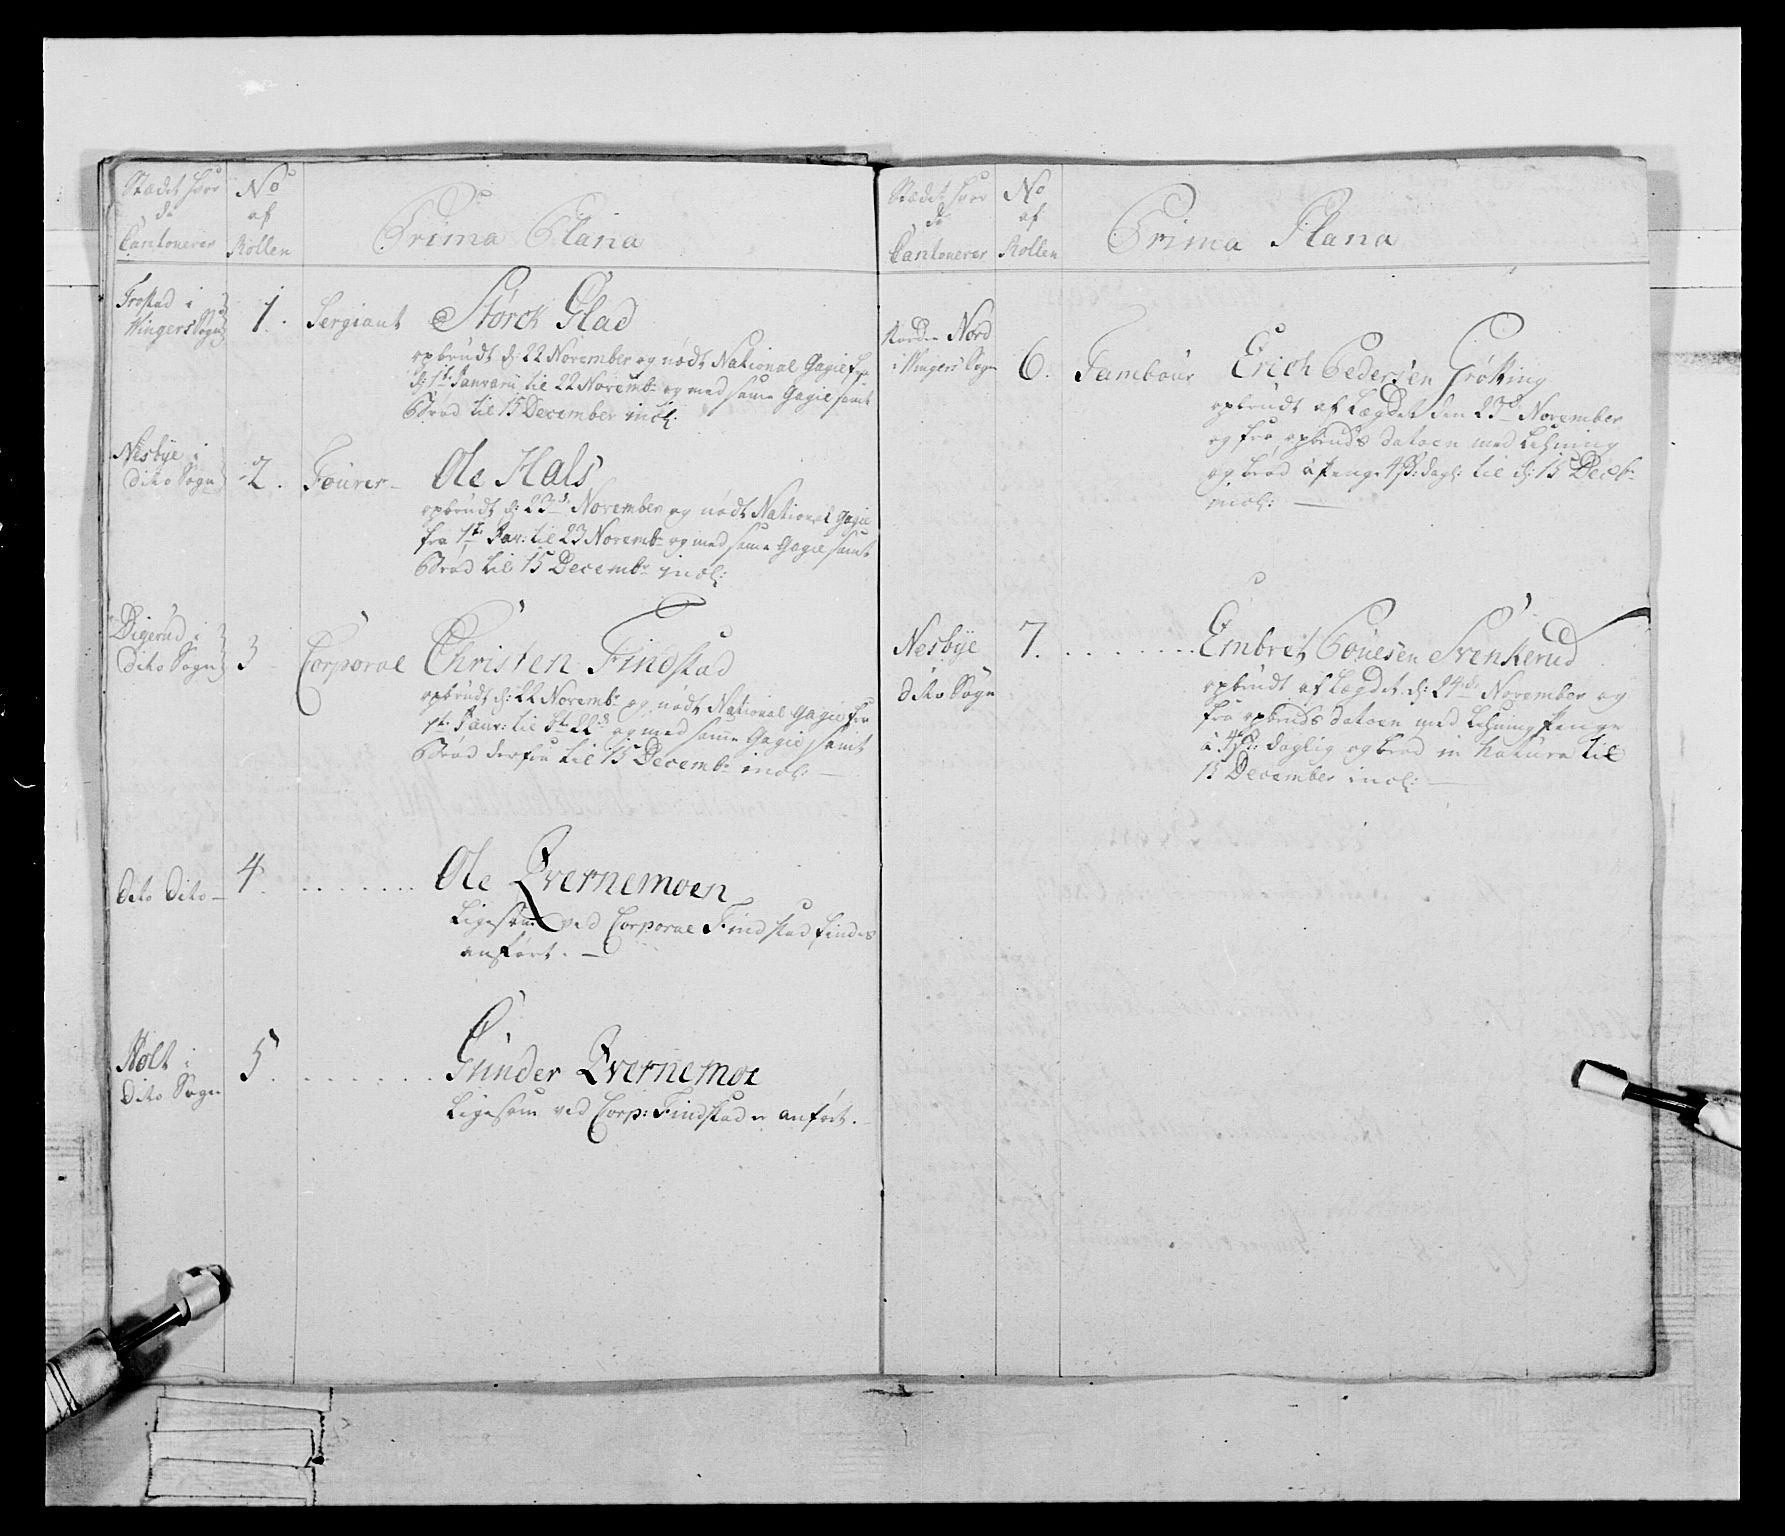 Stædet hvor
de
Cantonerer
No
af
Rollen
Prima Plana
Frostad i
Wingers Sogn
1.
Sergiant
Storch Glad
opbrudt d: 22 November og nødt National Gagie fra
d: 1t Januarii til 22 Novemb. og med samme Gagie samt
Brød til 15 December incl:
Nesbye i
dito Sogn
2.
Fourer
Ole Hals
opbrudt d: 23d November og nødt National Gagie
fra 1t Jan: til 23 Novemb. og med samme Gagie samt
Brød til 15 Decembr. incl:
Digerud i
dito Sogn
3
Corporal
Christen Findstad
opbrudt d: 22 Novembr. og nødt National Gagie fra
1t Janr: til 22d og med samme Gagie, samt
Brød til 15 Decembr. incl:
dito dito
4.
. . . . . . .
Ole Qvernemoen
Ligesom ved Corporal Findstad findes
anført.
Holt i
dito Sogn
5.
. . . . . . .
Gunder Qvernemoe
Ligesom ved Corp: Findstad er anført.
Stædet hvor
de
Cantonerer
No
af
Rollen
Prima Plana
Nord
i Wingers Sogn
6.
Tambour
Erich Pedersen Grøtting
opbrudt af Lægdet den 23d November
og fra opbruds datoen med Lehning
og brød à Penge 4s: dagl: til d: 15 Decbr
incl:
Nesbye
dito Sogn
7.
. . . . . . .
Embret Povelsen Svenkerud
opbrudt af Lægdet d: 24d November og
fra opbruds datoen med Lehning Penge
à 4s: daglig og brød in natura til
15 December incl: